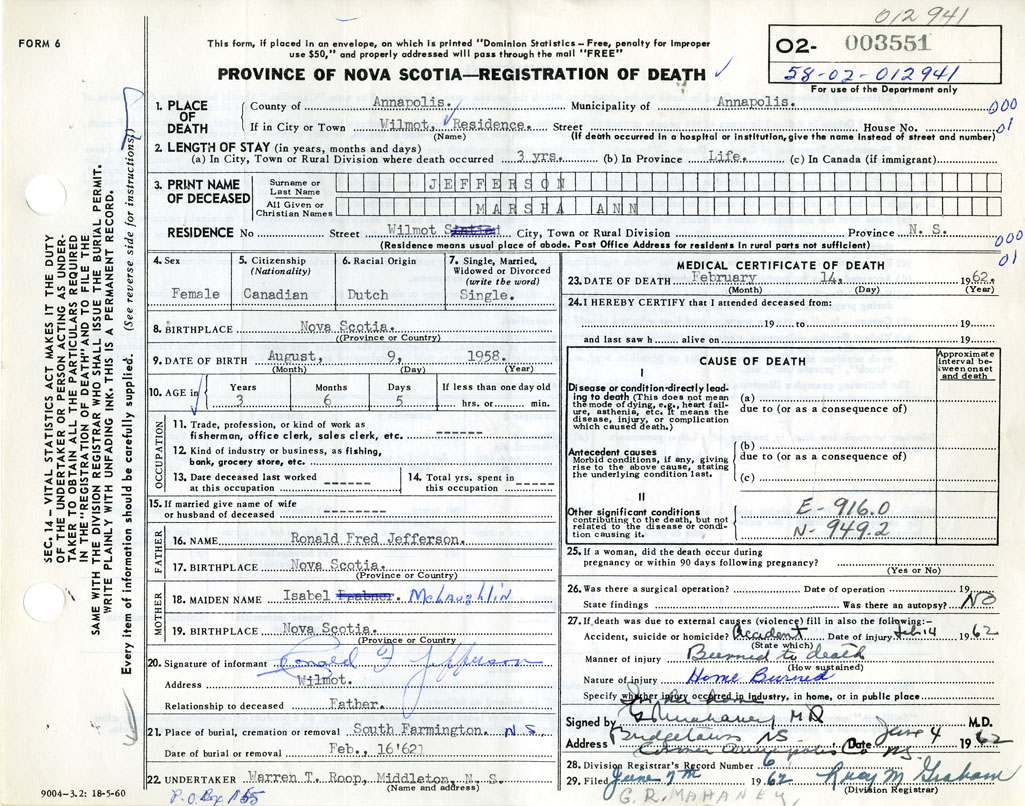 012 941
FORM 6
This form, if placed in an envelope, on which is printed "Dominion Statistics – Free, penalty for improper
use $50," and properly addressed will pass through the mail "FREE"
PROVINCE OF NOVA SCOTIA—REGISTRATION OF DEATH ✓
O2- 003551
58-02-012941
For use of the Department only
SEC. 14 – VITAL STATISTICS ACT MAKES IT THE DUTY
OF THE UNDERTAKER OR PERSON ACTING AS UNDER-
TAKER TO OBTAIN ALL THE PARTICULARS REQUIRED
IN THE "REGISTRATION OF DEATH" AND TO FILE THE
SAME WITH THE DIVISION REGISTRAR WHO SHALL ISSUE THE BURIAL PERMIT.
WRITE PLAINLY WITH UNFADING INK. THIS IS A PERMANENT RECORD.
Every item of information should be carefully supplied. (See reverse side for instructions)
1. PLACE OF DEATH
County of Annapolis. Municipality of Annapolis. 000
If in City or Town Wilmot, Residence. Street House No. 01
(Name) (If death occurred in a hospital or institution, give the name instead of street and number)
2. LENGTH OF STAY (in years, months and days)
(a) In City, Town or Rural Division where death occurred 3 yrs. (b) In Province Life. (c) In Canada (if immigrant)
3. PRINT NAME OF DECEASED
Surname or Last Name JEFFERSON
All Given or Christian Names MARSHA ANN
RESIDENCE No Street Wilmot City, Town or Rural Division Province N. S. 000
(Residence means usual place of abode. Post Office Address for residents in rural parts not sufficient) 01
4. Sex Female
5. Citizenship (Nationality) Canadian
6. Racial Origin Dutch
7. Single, Married, Widowed or Divorced (write the word) Single.
8. BIRTHPLACE Nova Scotia.
(Province or Country)
9. DATE OF BIRTH August, 9, 1958.
(Month) (Day) (Year)
10. AGE in Years Months Days If less than one day old
3 6 5 hrs. or min.
OCCUPATION
11. Trade, profession, or kind of work as
fisherman, office clerk, sales clerk, etc. -------
12. Kind of industry or business, as fishing,
bank, grocery store, etc. -------
13. Date deceased last worked at this occupation ------
14. Total yrs. spent in this occupation ------
15. If married give name of wife
or husband of deceased -------
FATHER
16. NAME Ronald Fred Jefferson.
17. BIRTHPLACE Nova Scotia.
(Province or Country)
MOTHER
18. MAIDEN NAME Isabel McLaughlin
19. BIRTHPLACE Nova Scotia.
(Province or Country
20. Signature of informant Ronald F Jefferson
Address Wilmot.
Relationship to deceased Father.
21. Place of burial, cremation or removal South Farmington. N.S
Date of burial or removal Feb., 16'62
22. UNDERTAKER Warren T. Roop, Middleton, N. S.
(Name and address)
9004-3.2: 18-5-60
MEDICAL CERTIFICATE OF DEATH
23. DATE OF DEATH February 14. 1962.
(Month) (Day) (Year)
24. I HEREBY CERTIFY that I attended deceased from:
19 to 19
and last saw h alive on 19
CAUSE OF DEATH
Approximate interval be-tween onset and death
I
Disease or condition-directly lead-
ing to death (This does not mean
the mode of dying, e.g., heart fail-
ure, asthenia, etc. It means the
disease, injury, or complication
which caused death.)
(a)
due to (or as a consequence of)
Antecedent causes
Morbid conditions, if any, giving
rise to the above cause, stating
the underlying condition last.
(b)
due to (or as a consequence of)
(c)
II
Other significant conditions
contributing to the death, but not
related to the disease or condi-
tion causing it.
E-916.0
N-949.2
25. If a woman, did the death occur during
pregnancy or within 90 days following pregnancy?
(Yes or No)
26. Was there a surgical operation? Date of operation 19
State findings Was there an autopsy? NO
27. If death was due to external causes (violence) fill in also the following:–
Accident, suicide or homicide? Accident Date of injury Feb 14 1962
(State which)
Manner of injury Burned to death
(How sustained)
Nature of injury Home Burned
Specify whether injury occurred in industry, in home, or in public place
In her home
Signed by G R Mahaney MD M.D.
Address Bridgetown NS Date June 4 1962
28. Division Registrar's Record Number 6
29. Filed June 7th 1962
(Division Registrar)
P.O Box 155
G. R. MAHANEY,